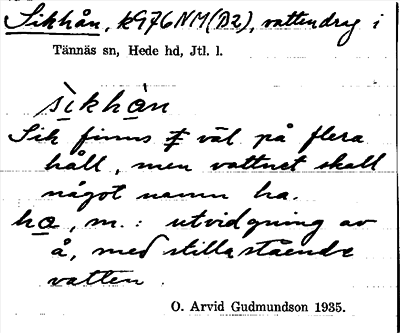 Sikhån, k976NM(D2), vattendrag i
Tännäs sn, Hede hd, Jtl. l.
sìkhàn
Sik finns väl på flera
håll, men vattnet skall
något namn ha.
ha, m.: utvidgning av
å, med stillastående
vatten.
O. Arvid Gudmundson 1935.